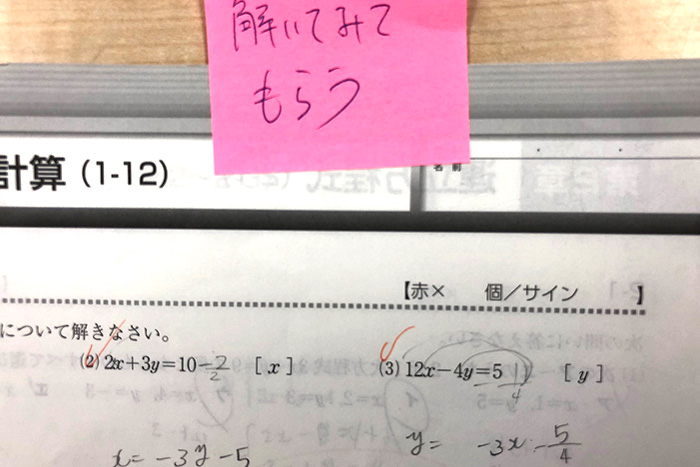 解いてみて
もらう
計算 (1-12)
名前
【赤× 個／サイン 】
について解きなさい。
(2) 2x+3y=10 [ x ]
(3) 12x−4y=5 [ y ]
x = −3y−5
y= −3x−5/4